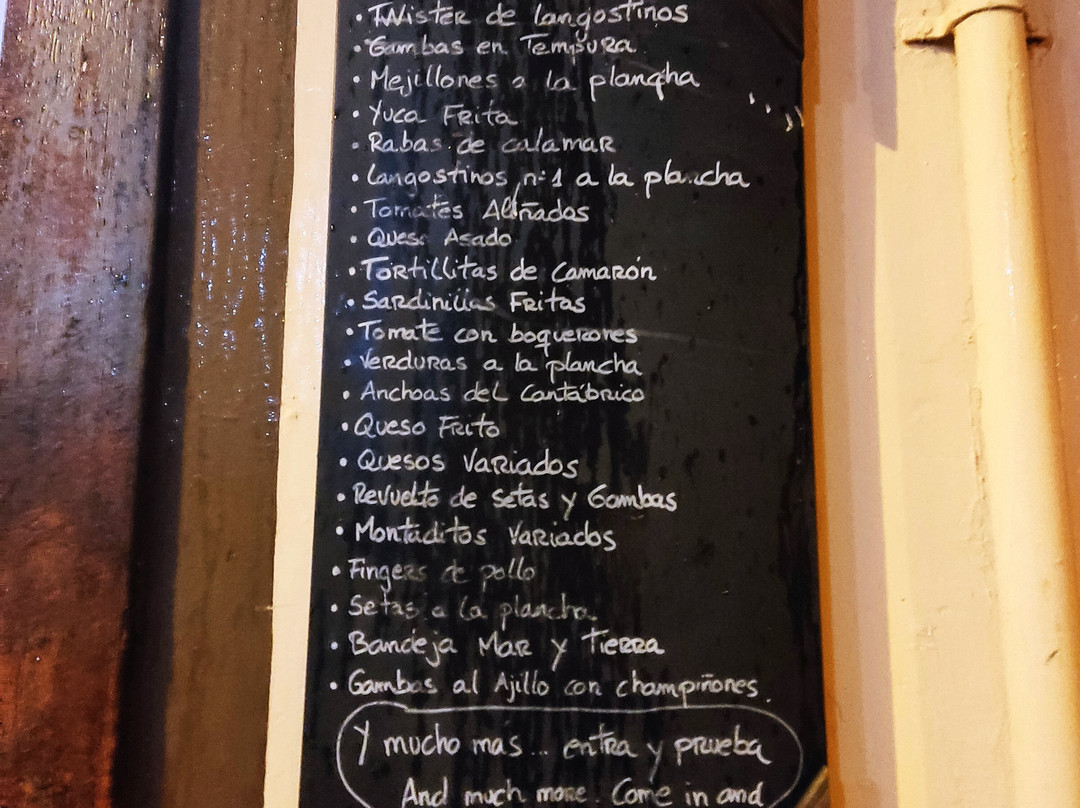 • Twister de langostinos
• Gambas en Tempura
• Mejillones a la plancha
• Yuca Frita
• Rabas de calamar
• Langostinos nº1 a la plancha
• Tomates Aliñados
• Queso Asado
• Tortillitas de Camarón
• Sardinillas Fritas
• Tomate con boquerones
• Verduras a la plancha
• Anchoas del Cantábrico
• Queso Frito
• Quesos Variados
• Revuelto de Setas y Gambas
• Montaditos Variados
• Fingers de pollo
• Setas a la plancha
• Bandeja Mar y Tierra
• Gambas al Ajillo con champiñones.
Y mucho mas... entra y prueba
And much more. Come in and